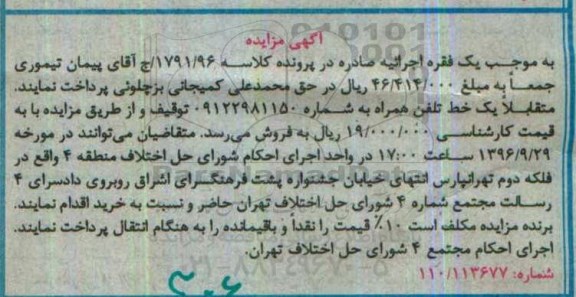 آگهی مزایده
به موجب یک فقره اجرائیه صادره در پرونده کلاسه ۱۷۹۱/۹۶/ج آقای پیمان تیموری
جمعاً به مبلغ ۴۶/۴۱۴/۰۰۰ ریال در حق محمدعلی کمیجانی بزچلوئی پرداخت نمایند.
متقابلاً یک خط تلفن همراه به شماره ۰۹۱۲۲۹۸۱۱۵۰ توقیف و از طریق مزایده با به
قیمت کارشناسی ۱۹/۰۰۰/۰۰۰ ریال به فروش می‌رسد. متقاضیان می‌توانند در مورخه
۱۳۹۶/۹/۲۹ ساعت ۱۷:۰۰ در واحد اجرای احکام شورای حل اختلاف منطقه ۴ واقع در
فلکه دوم تهرانپارس انتهای خیابان جشنواره پشت فرهنگسرای اشراق روبروی دادسرای ۴
رسالت مجتمع شماره ۴ شورای حل اختلاف تهران حاضر و نسبت به خرید اقدام نمایند.
برنده مزایده مکلف است ۱۰٪ قیمت را نقداً و باقیمانده را به هنگام انتقال پرداخت نمایند.
اجرای احکام مجتمع ۴ شورای حل اختلاف تهران.
شماره: ۱۱۰/۱۱۳۶۷۷
۳۰۶